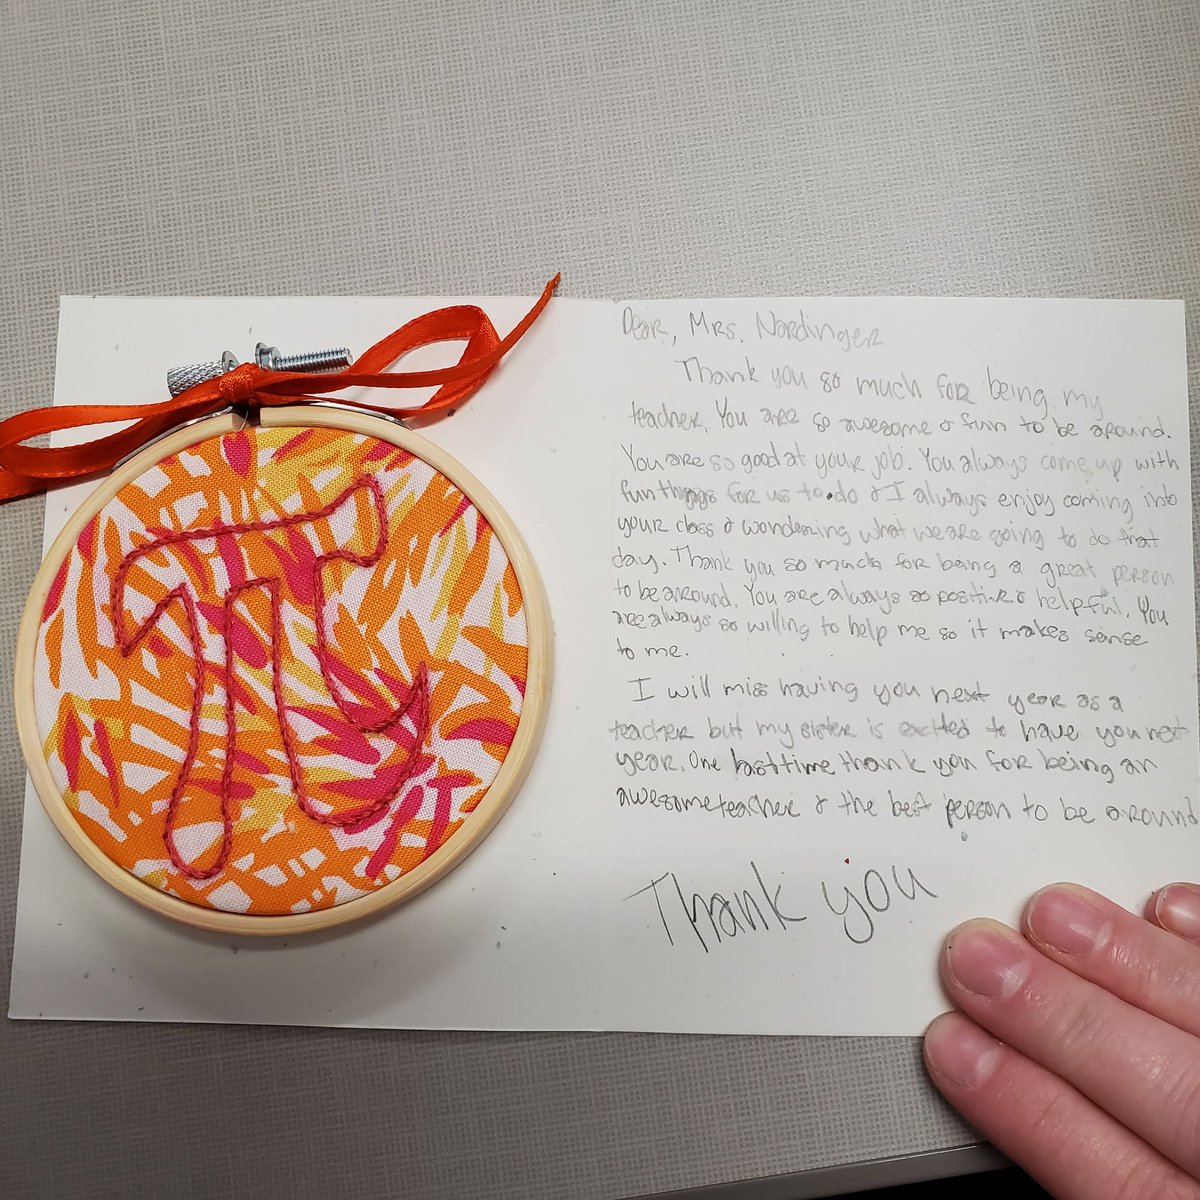 π
Dear, Mrs. Nardinger
Thank you so much for being my
teacher. You are so awesome & fun to be around.
You are so good at your job. You always come up with
fun things for us to do & I always enjoy coming into
your class & wondering what we are going to do that
day. Thank you so much for being a great person
to be around. You are always so positive & helpful. You
are always so willing to help me so it makes sense
to me.
I will miss having you next year as a
teacher but my sister is excited to have you next
year. One last time thank you for being an
awesome teacher & the best person to be around
Thank you